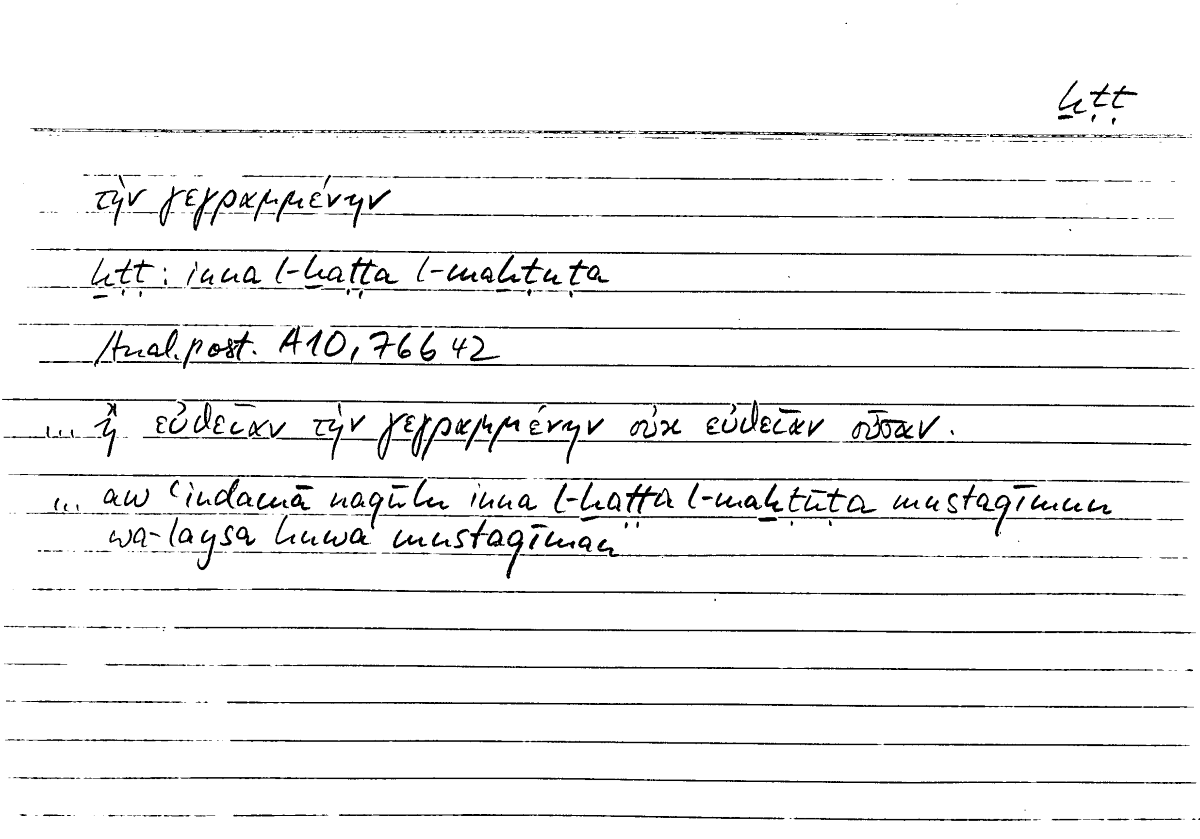 ḫṭṭ
τὴν γεγραμμένην
ḫṭṭ: inna l-ḫaṭṭa l-maḫṭuṭa
Anal. post. A10, 76b42
... ἢ εὐθεῖαν τὴν γεγραμμένην οὐκ εὐθεῖαν οὖσαν.
... aw ʿindamā naqūlu inna l-ḫaṭṭa l-maḫṭūṭa mustaqīmun
wa-laysa huwa mustaqīman